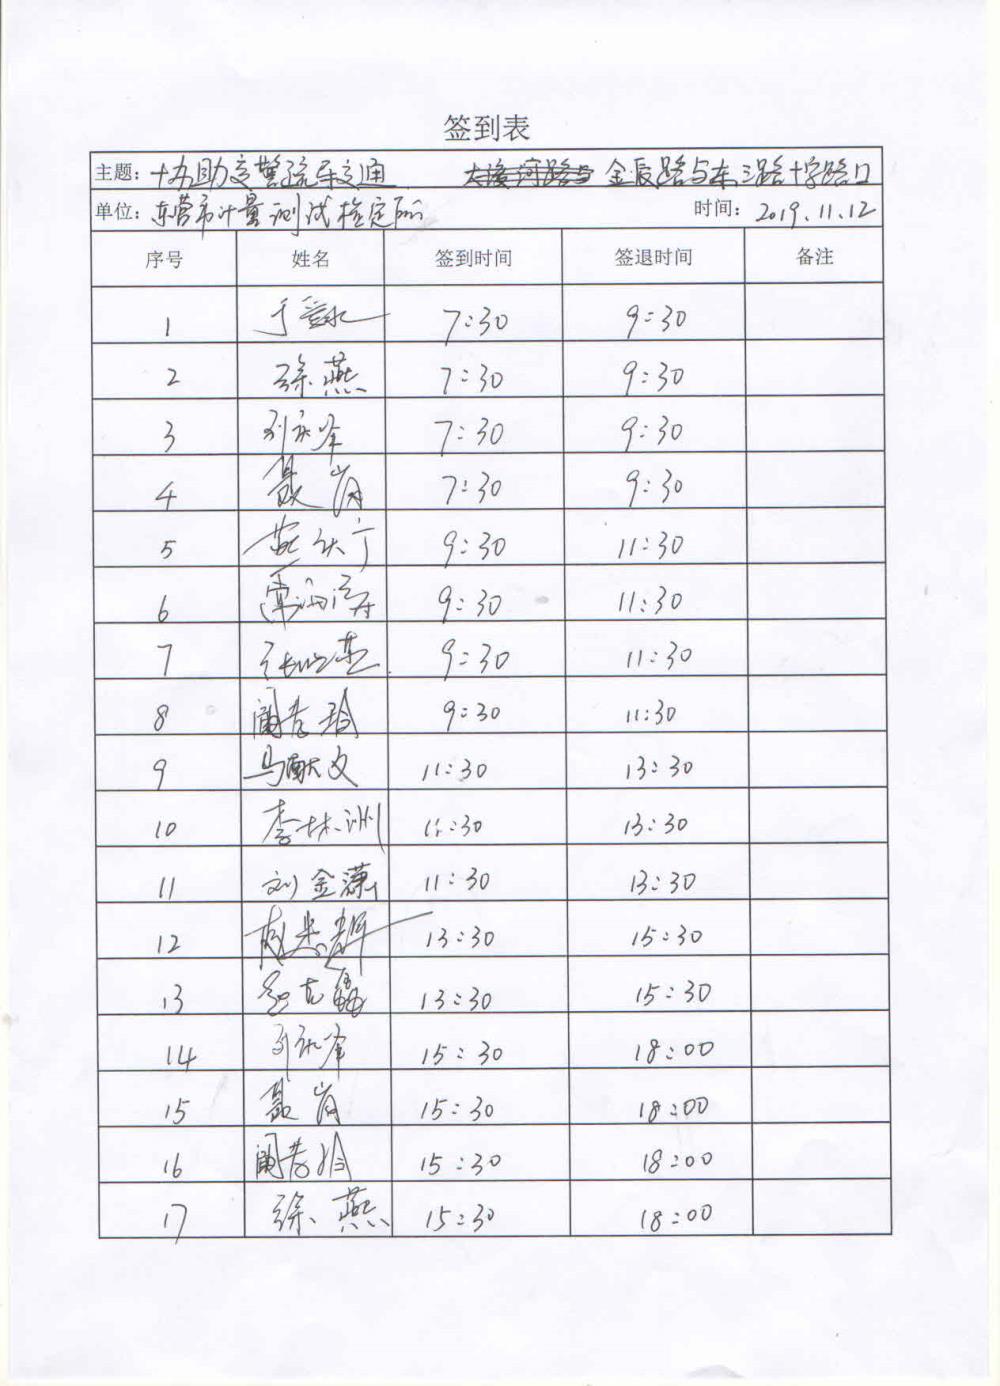 签到表
主题：协助交警疏导交通 大渡河路与 金辰路与东三路十字路口
单位：东营市计量测试检定所 时间：2019.11.12
序号 姓名 签到时间 签退时间 备注
1 7:30 9:30
2 徐燕 7:30 9:30
3 刘永峰 7:30 9:30
4 聂岗 7:30 9:30
5 9:30 11:30
6 9:30 11:30
7 9:30 11:30
8 9:30 11:30
9 马献文 11:30 13:30
10 李林洲 11:30 13:30
11 刘金潇 11:30 13:30
12 13:30 15:30
13 13:30 15:30
14 刘永峰 15:30 18:00
15 聂岗 15:30 18:00
16 15:30 18:00
17 徐燕 15:30 18:00